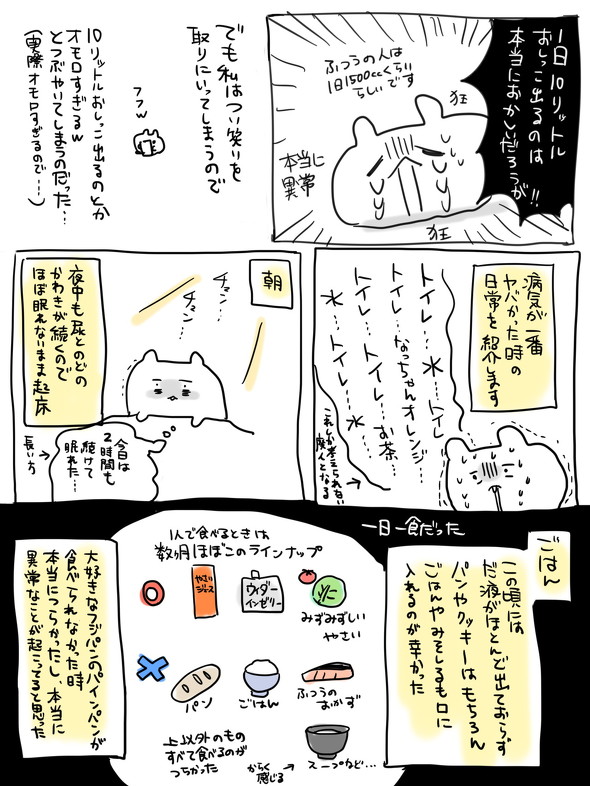 1日10リットル
おしっこ出るのは
本当におかしいだろうが!!
ふつうの人は
1日1500ccくらい
らしいです
狂
本当に
異常
狂
でも私はつい笑いを
取りにいってしまうので
フフw
10リットルおしっこ出るのとか
オモロすぎるw
とつぶやいてしまうのだった…
(実際オモロすぎるので…)
病気が一番
ヤバかった時の
日常を紹介します
トイレ…水…トイレ
トイレ…なっちゃんオレンジ…
トイレ…トイレ…お茶…
水…トイレ…水…
これしか考えられない
廃人となる
朝
チュン…
チュン…
夜中も尿とのどの
かわきが続くので
ほぼ眠れないまま起床
今日は
2時間も
続けて
眠れた…
長い方
一日一食だった
ごはん
この頃には
だ液がほとんど出ておらず
パンやクッキーはもちろん
ごはんやみそしるも口に
入れるのが辛かった
1人で食べるときは
数ヶ月ほぼこのラインナップ
やさい
ジュース
ウィダー
インゼリー
みずみずしい
やさい
パン
ごはん
ふつうの
おかず
上以外のもの
すべて食べるのが
つらかった
からく
感じる
スープなど…
大好きなフジパンのパインパンが
食べられなかった時
本当につらかったし、本当に
異常なことが起こってると思った